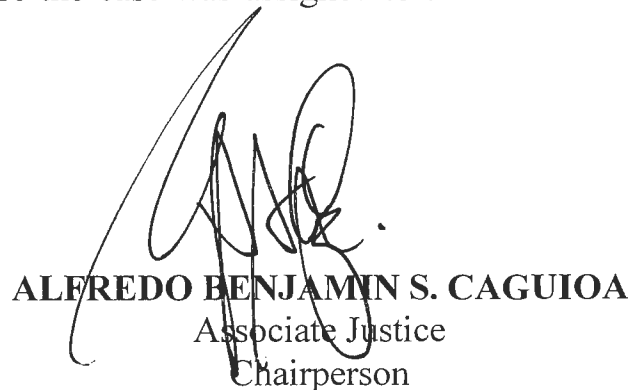 ALFREDO BENJAMIN S. CAGUIOA
Associate Justice
Chairperson